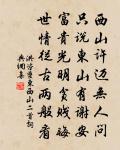 西山許邁無人問
只說東山有謝安
富貴光明貧賤晦
世情從古兩般看
洪咨夔東西山二首詞
典網集